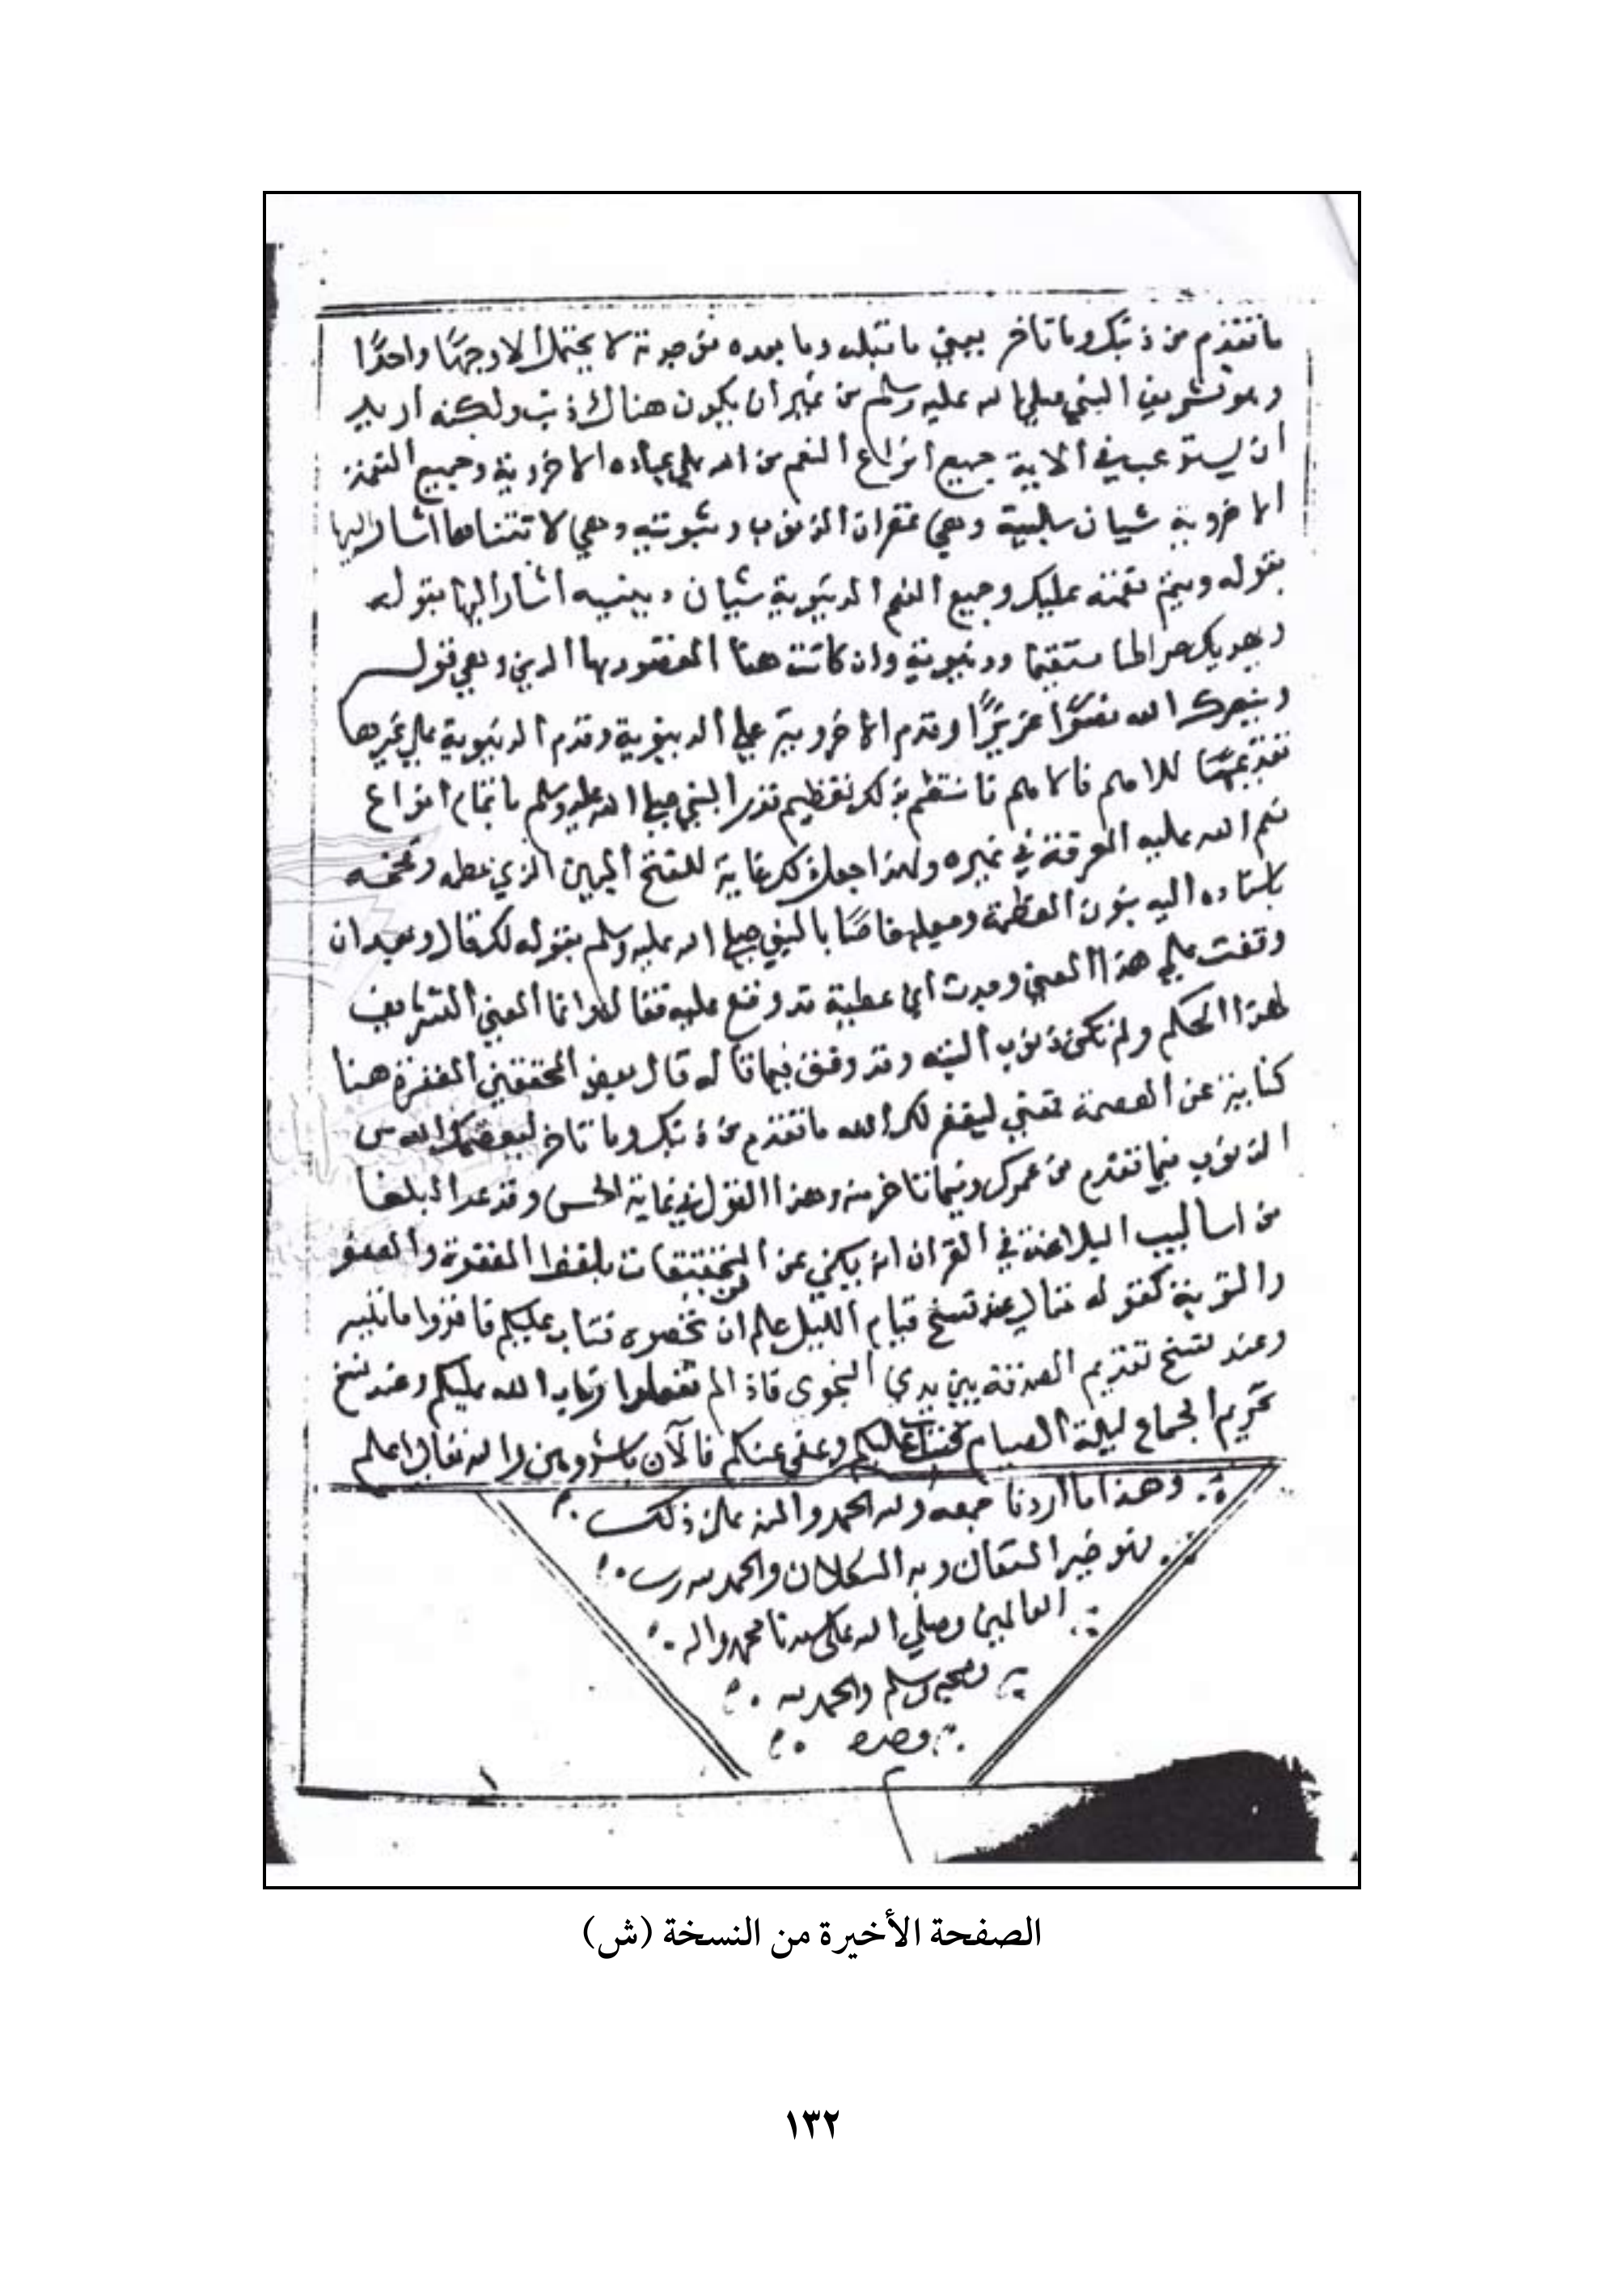 ما تقدم من ذنبك وما تاخر بعين ما قبله وما بعده فوجدته لا يحتمل الا وجها واحدا
وهو تشريف النبي صلى الله عليه وسلم من غير ان يكون هناك ذنب ولكنه اريد
ان يستوعب في الاية جميع انواع النعم من الله على عباده الاخروية وجميع النعم
الاخروية شيان سلبية وهي غفران الذنوب وثبوتية وهي لا تتناها اشار اليها
بقوله ويتم نعمته عليك وجميع النعم الدنيوية شيان دينيه اشار اليها بقوله
ويهديك صراطا مستقيما ودنيوية وان كانت هنا المقصود بها الدين وهي قوله
وينصرك الله نصرا عزيزا وقدم الاخروية على الدنيوية وقدم الدنيوية على غيرها
تقديما للاهم فالاهم فانتظم بذلك تعظيم قدر النبي صلى الله عليه وسلم باتمام انواع
نعم الله عليه المعرفة في غيره ولهذا جعل ذلك غاية للفتح المبين الذي عظمه وفخمه
باسناده اليه بنون العظمة وجعله خاصا بالنبي صلى الله عليه وسلم بقوله لك قال وبعد ان
وقفت على هذا المعنى وجدت ابن عطية قد وقع عليه فقال وانما المعنى التشريف
لهذا الحكم ولم تكن ذنوب البته وقد وفق فيما قاله قال بعض المحققين المغفرة هنا
كناية عن العصمة فمعنى ليغفر لك الله ما تقدم من ذنبك وما تاخر ليعصمك الله من
الذنوب فيما تقدم من عمرك وفيما تاخر منه وهذا القول في غاية الحسن وقد عد البلغا
من اساليب البلاغة في القران انه يكني عن التخفيفات بلفظ المغفرة والعفو
والتوبة كقوله تعالى عند نسخ قيام الليل علم ان تحصوه فتاب عليكم فاقروا ما تيسر
وعند نسخ تقديم الصدقة بين يدي النجوى فاذ لم تفعلوا وتاب الله عليكم وعند نسخ
تحريم الجماع ليلة الصيام فتاب عليكم وعفى عنكم فالآن باشروهن والله تعالى اعلم
وهذا ما اردنا جمعه ولله الحمد والمنه على ذلك
فهو خير المستعان وبه التكلان والحمد لله رب
العالمين وصلى الله على سيدنا محمد واله
وصحبه وسلم والحمد لله
وحده
الصفحة الأخيرة من النسخة (ش)
١٣٢